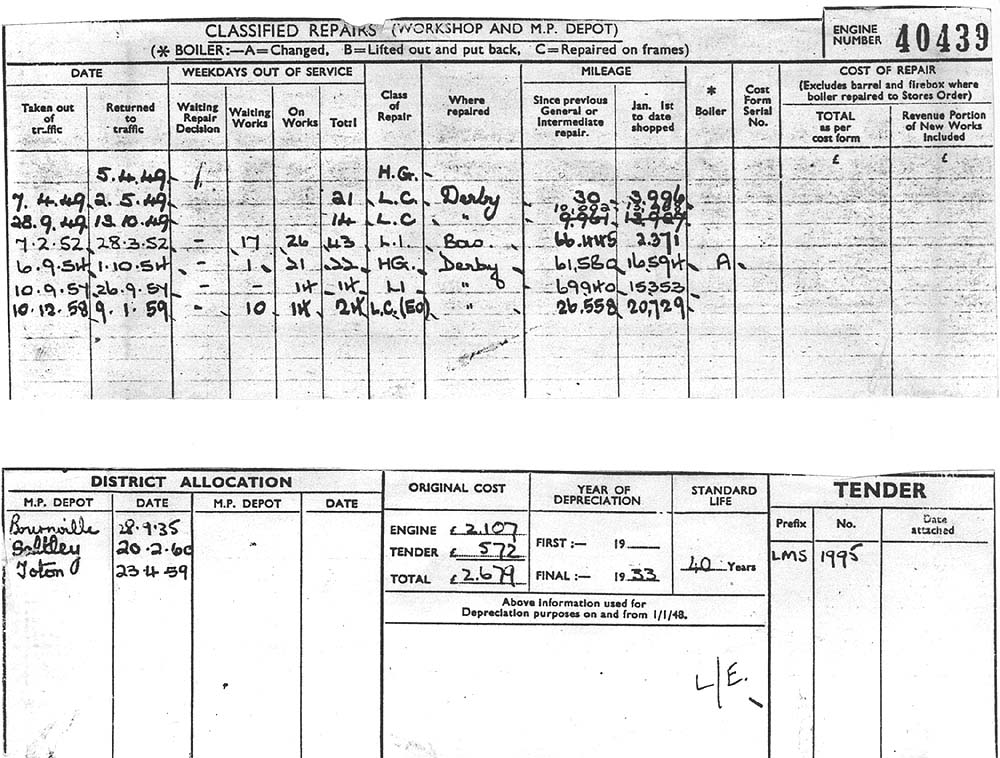 CLASSIFIED REPAIRS (WORKSHOP AND M.P. DEPOT)
(* BOILER:—A=Changed, B=Lifted out and put back, C=Repaired on frames)
ENGINE NUMBER 40439
DATE WEEKDAYS OUT OF SERVICE Class of Repair Where repaired MILEAGE * Boiler Cost Form Serial No. COST OF REPAIR
(Excludes barrel and firebox where boiler repaired to Stores Order)
Taken out of traffic Returned to traffic Waiting Repair Decision Waiting Works On Works Total Since previous General or Intermediate repair. Jan. 1st to date shopped TOTAL as per cost form Revenue Portion of New Works Included
£ £
5.4.49 H.G.
7.4.49 2.5.49 21 L.C. Derby 30 3.996
10.002
28.9.49 13.10.49 14 L.C " 9.961 13.929
7.2.52 28.3.52 - 17 26 43 L.I. Bow. 66.445 2.371
6.9.54 1.10.54 - 1 21 22 HG. Derby 61,580 16,594 A
10.9.57 26.9.57 - - 14 14 LI " 69940 15353
10.12.58 9.1.59 - 10 14 24 L.C.(EO) " 26.558 20,729
DISTRICT ALLOCATION
M.P. DEPOT DATE M.P. DEPOT DATE
Bournville 28.9.35
Saltley 20.2.60
Toton 23.4.59
ORIGINAL COST YEAR OF DEPRECIATION STANDARD LIFE
ENGINE £ 2.107
TENDER £ 572
TOTAL £ 2.679
FIRST :— 19
FINAL :— 19 33
40 Years
Above information used for
Depreciation purposes on and from 1/1/48.
L/E.
TENDER
Prefix No. Date attached
LMS 1995